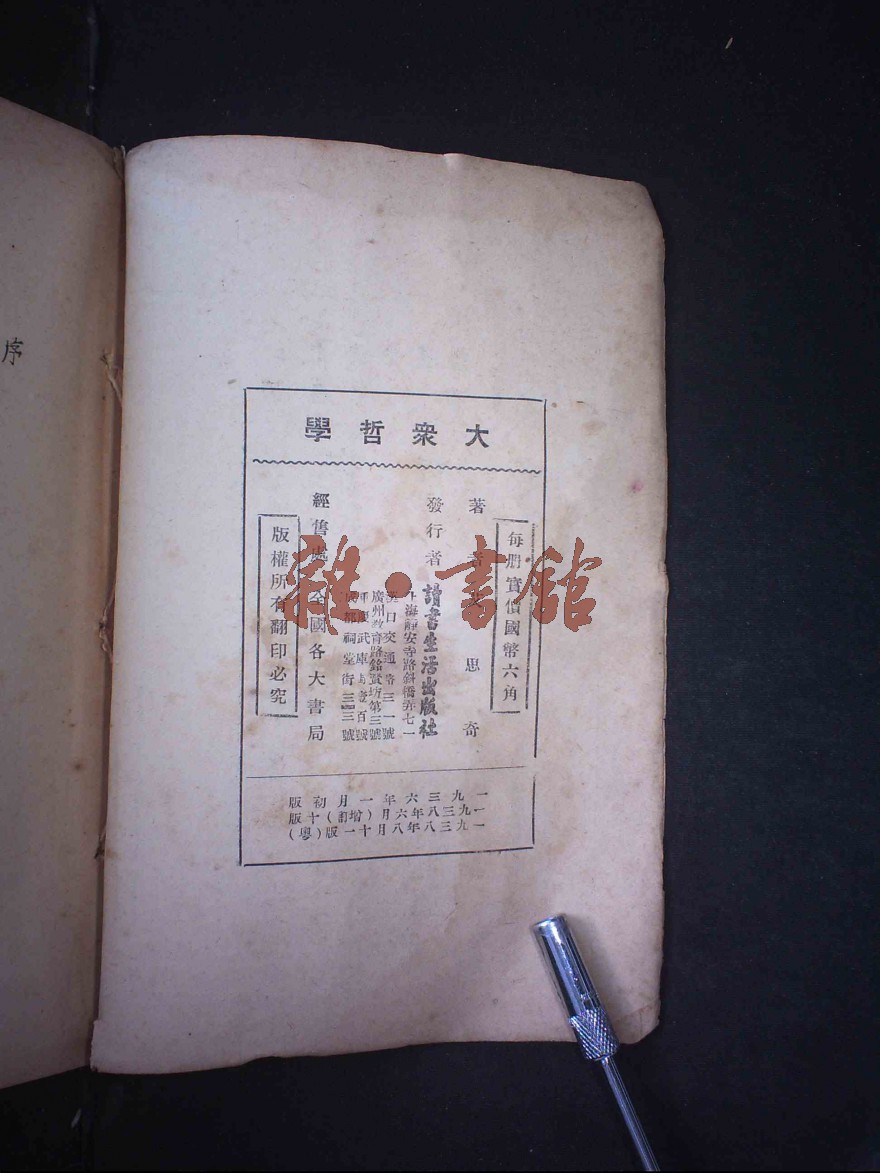 序
大衆哲學
每册實價國幣六角
著者艾思奇
發行者 讀書生活出版社
上海靜安寺路斜橋弄七一
漢口交通路三一號
廣州教育路銘賢坊第三號
重慶武庫街壹百號
成都祠堂街三三號
經售處 全國各大書局
版權所有翻印必究
一九三六年一月初版
一九三八年六月（增訂）十版
一九三八年八月十一版（粵）
雜·書館